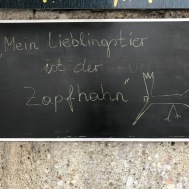 „Mein Lieblingstier
ist der
Zapfhahn"